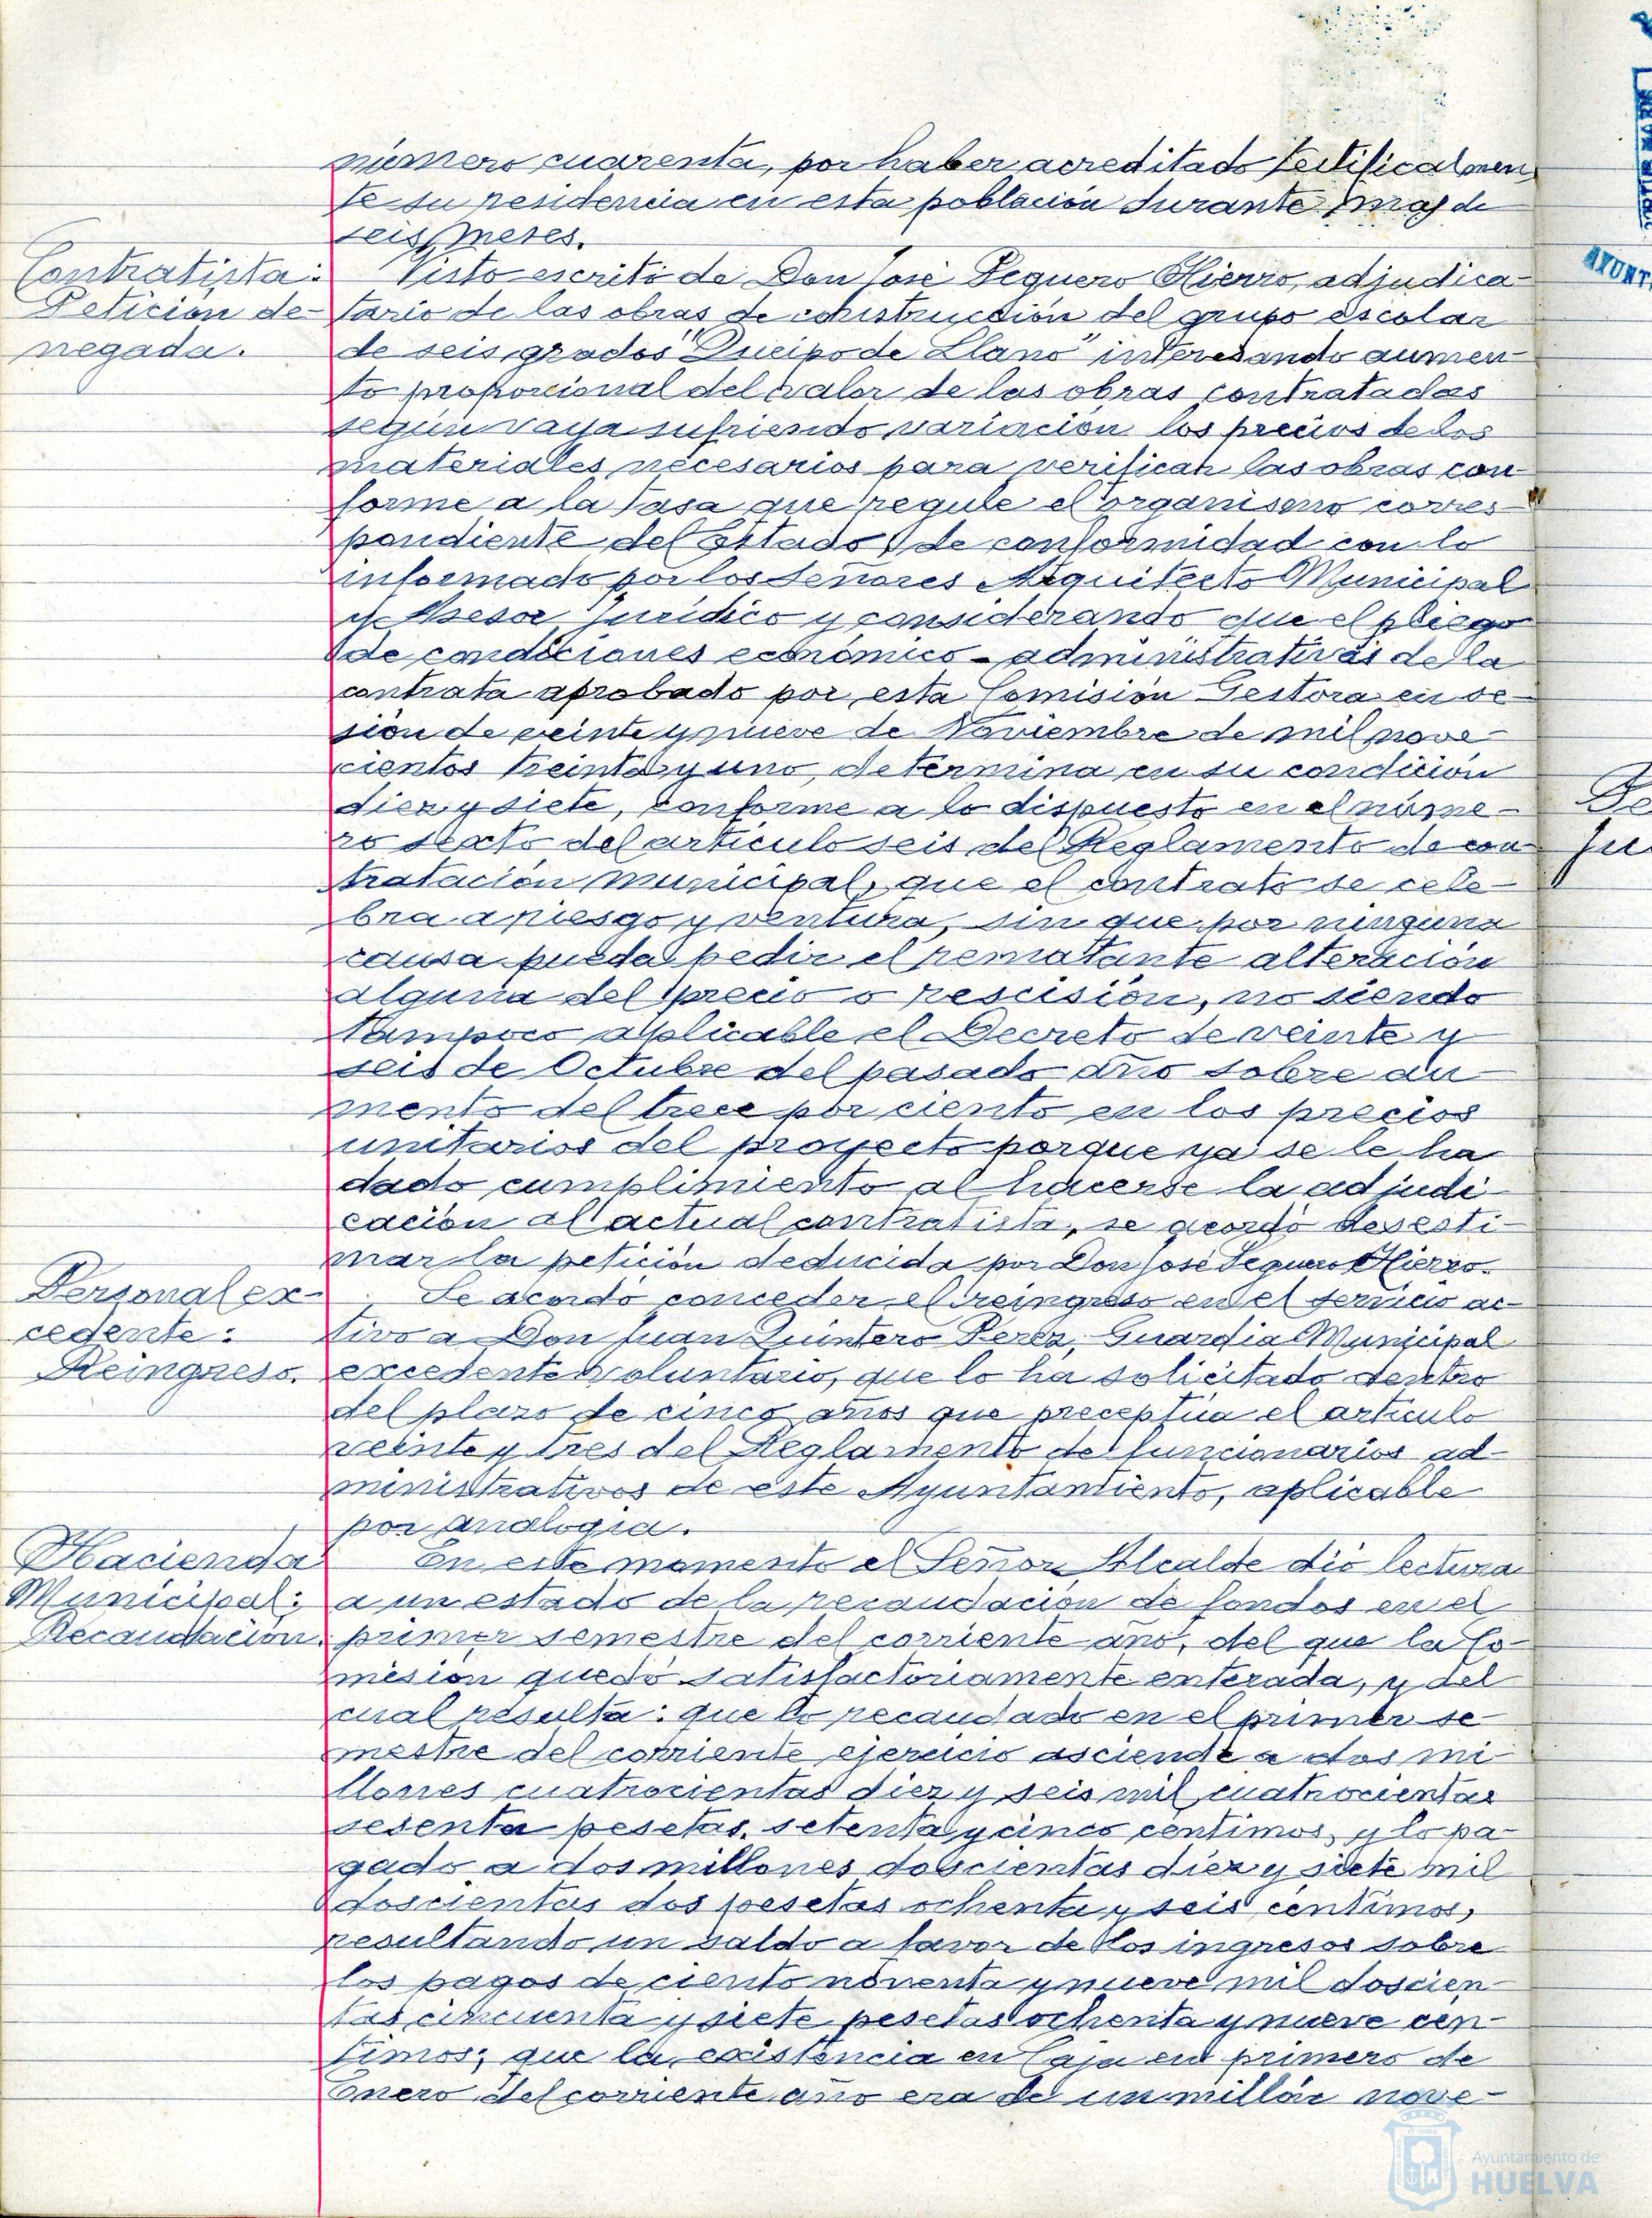 número cuarenta, por haber acreditado testificalmen
te su residencia en esta población durante mas de
seis meses.
Contratista:
Petición de-
negada.
Visto escrito de Don José Peguero Hierro, adjudica-
tario de las obras de construcción del grupo escolar
de seis grados "Queipo de Llano" interesando aumen-
to proporcional del valor de las obras contratadas
según vaya sufriendo variación los precios de los
materiales necesarios para verificar las obras con-
forme a la tasa que regule el organismo corres-
pondiente del Estado, de conformidad con lo
informado por los Señores Arquitecto Municipal
y Asesor Jurídico y considerando que el pliego
de condiciones económico-administrativas de la
contrata aprobado por esta Comisión Gestora en se-
sión de veinte y nueve de Noviembre de mil nove-
cientos treinta y uno, determina en su condición
diez y siete, conforme a lo dispuesto en el núme-
ro sexto del artículo seis del Reglamento de con-
tratación municipal, que el contrato se cele-
bra a riesgo y ventura, sin que por ninguna
causa pueda pedir el rematante alteración
alguna del precio o rescisión, no siendo
tampoco aplicable el Decreto de veinte y
seis de Octubre del pasado año sobre au-
mento del trece por ciento en los precios
unitarios del proyecto porque ya se le ha
dado cumplimiento al hacerse la adjudi-
cación al actual contratista, se acordó desesti-
mar la petición deducida por Don José Peguero Hierro.
Personal ex-
cedente:
Reingreso.
Se acordó conceder el reingreso en el servicio ac-
tivo a Don Juan Quintero Perez, Guardia Municipal
excedente voluntario, que lo ha solicitado dentro
del plazo de cinco años que preceptúa el artículo
veinte y tres del Reglamento de funcionarios ad-
ministrativos de este Ayuntamiento, aplicable
por analogía.
Hacienda
Municipal:
Recaudación.
En este momento el Señor Alcalde dió lectura
a un estado de la recaudación de fondos en el
primer semestre del corriente año, del que la Co-
misión quedó satisfactoriamente enterada, y del
cual resulta: que lo recaudado en el primer se-
mestre del corriente ejercicio asciende a dos mi-
llones cuatrocientas diez y seis mil cuatrocientas
sesenta pesetas, setenta y cinco céntimos, y lo pa-
gado a dos millones doscientas diez y siete mil
doscientas dos pesetas ochenta y seis céntimos,
resultando un saldo a favor de los ingresos sobre
los pagos de ciento noventa y nueve mil doscien-
tas cincuenta y siete pesetas ochenta y nueve cén-
timos; que la existencia en Caja en primero de
Enero del corriente año era de un millón nove-
Ayuntamiento de
HUELVA